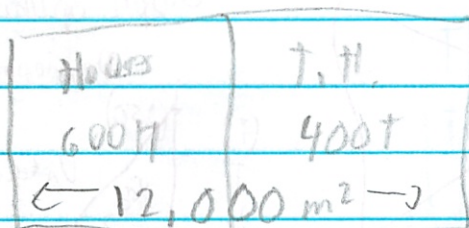 Houses T.H.
600H 400T
← 12,000 m² →